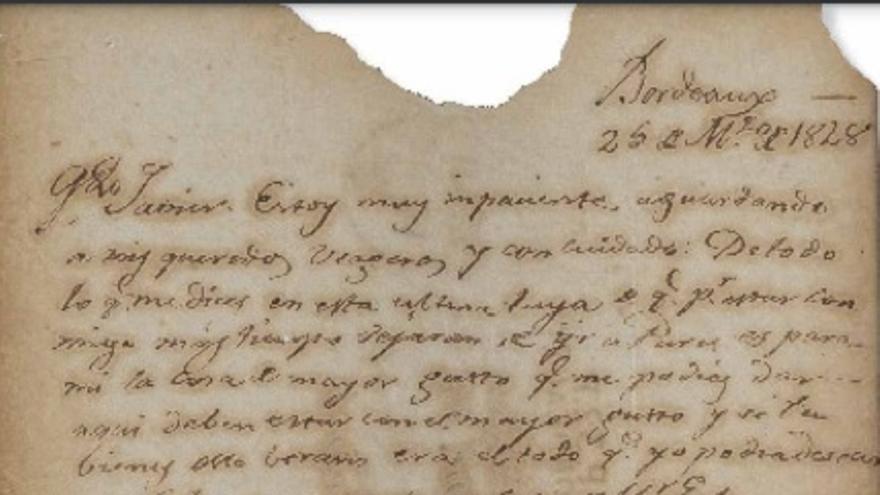 Bordeaux —
25 de Mzo de 1828
Qdo Javier. Estoy muy impaciente, aguardando
a mis queridos viageros y con cuidado: De todo
lo q. me dices en esta ultima tuya de q. pr estar con
migo mas tiempo dejaran de yr a Paris es para
mi la cosa de mayor gusto q. me podias dar
aqui deben estar con el mayor gusto y si tu
bienes este verano era el todo q. yo podia desear